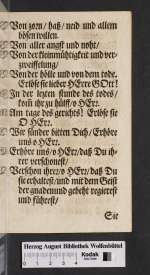 Von zorn / haß / neid und allem
bösen willen.
Von aller angst und noht /
Von der kleinmühtigkeit und ver-
zweiffelung /
Von der hölle und von dem tode.
Erlöse sie lieber HErre GOtt!
In der letzten stunde des todes /
kom ihr zu hülff / o HErr.
Am tage des gerichts! Erlöse sie
O HErr.
Wir sünder bitten Dich / Erhöre
uns o HErr.
Erhöre uns / o HErr / daß Du ih-
rer verschonest /
Verschon ihrer / o HErr / daß Du
sie erhaltest / und mit dem Geist
der gnaden und gebeht regierest
und führest /
Sie
Herzog August Bibliothek Wolfenbüttel
Kodak